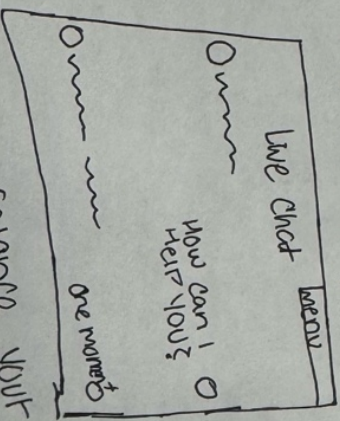 Menu
Live Chat
How can I
Help you?
one moment
your